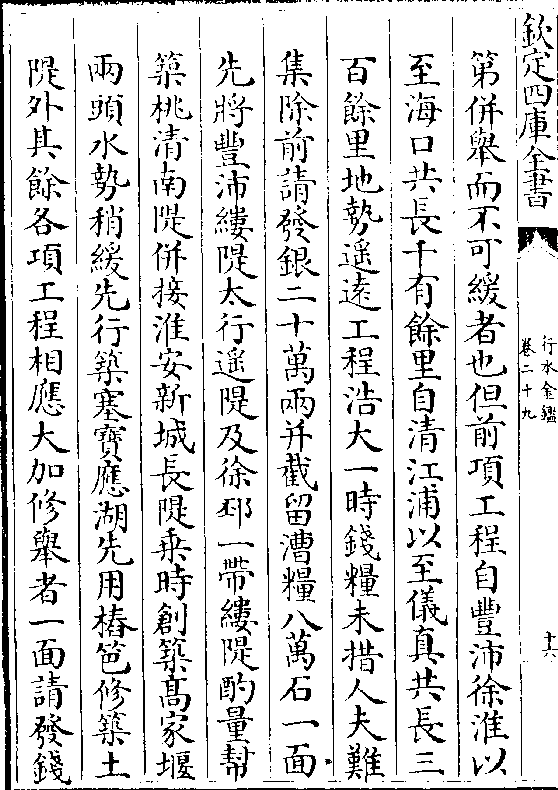 欽定四庫全書
行水金鑑
卷二十九
十六
第併舉而不可緩者也但前項工程自豐沛徐淮以
至海口共長千有餘里自清江浦以至儀真共長三
百餘里地勢遥遠工程浩大一時錢糧未措人夫難
集除前請發銀二十萬兩并截留漕糧八萬石一面
先將豐沛縷隄太行遥隄及徐邳一帶縷隄酌量幫
築桃清南隄併接淮安新城長隄乗時創築髙家堰
兩頭水勢稍緩先行築塞寳應湖先用樁笆修築土
隄外其餘各項工程相應大加修舉者一面請發錢